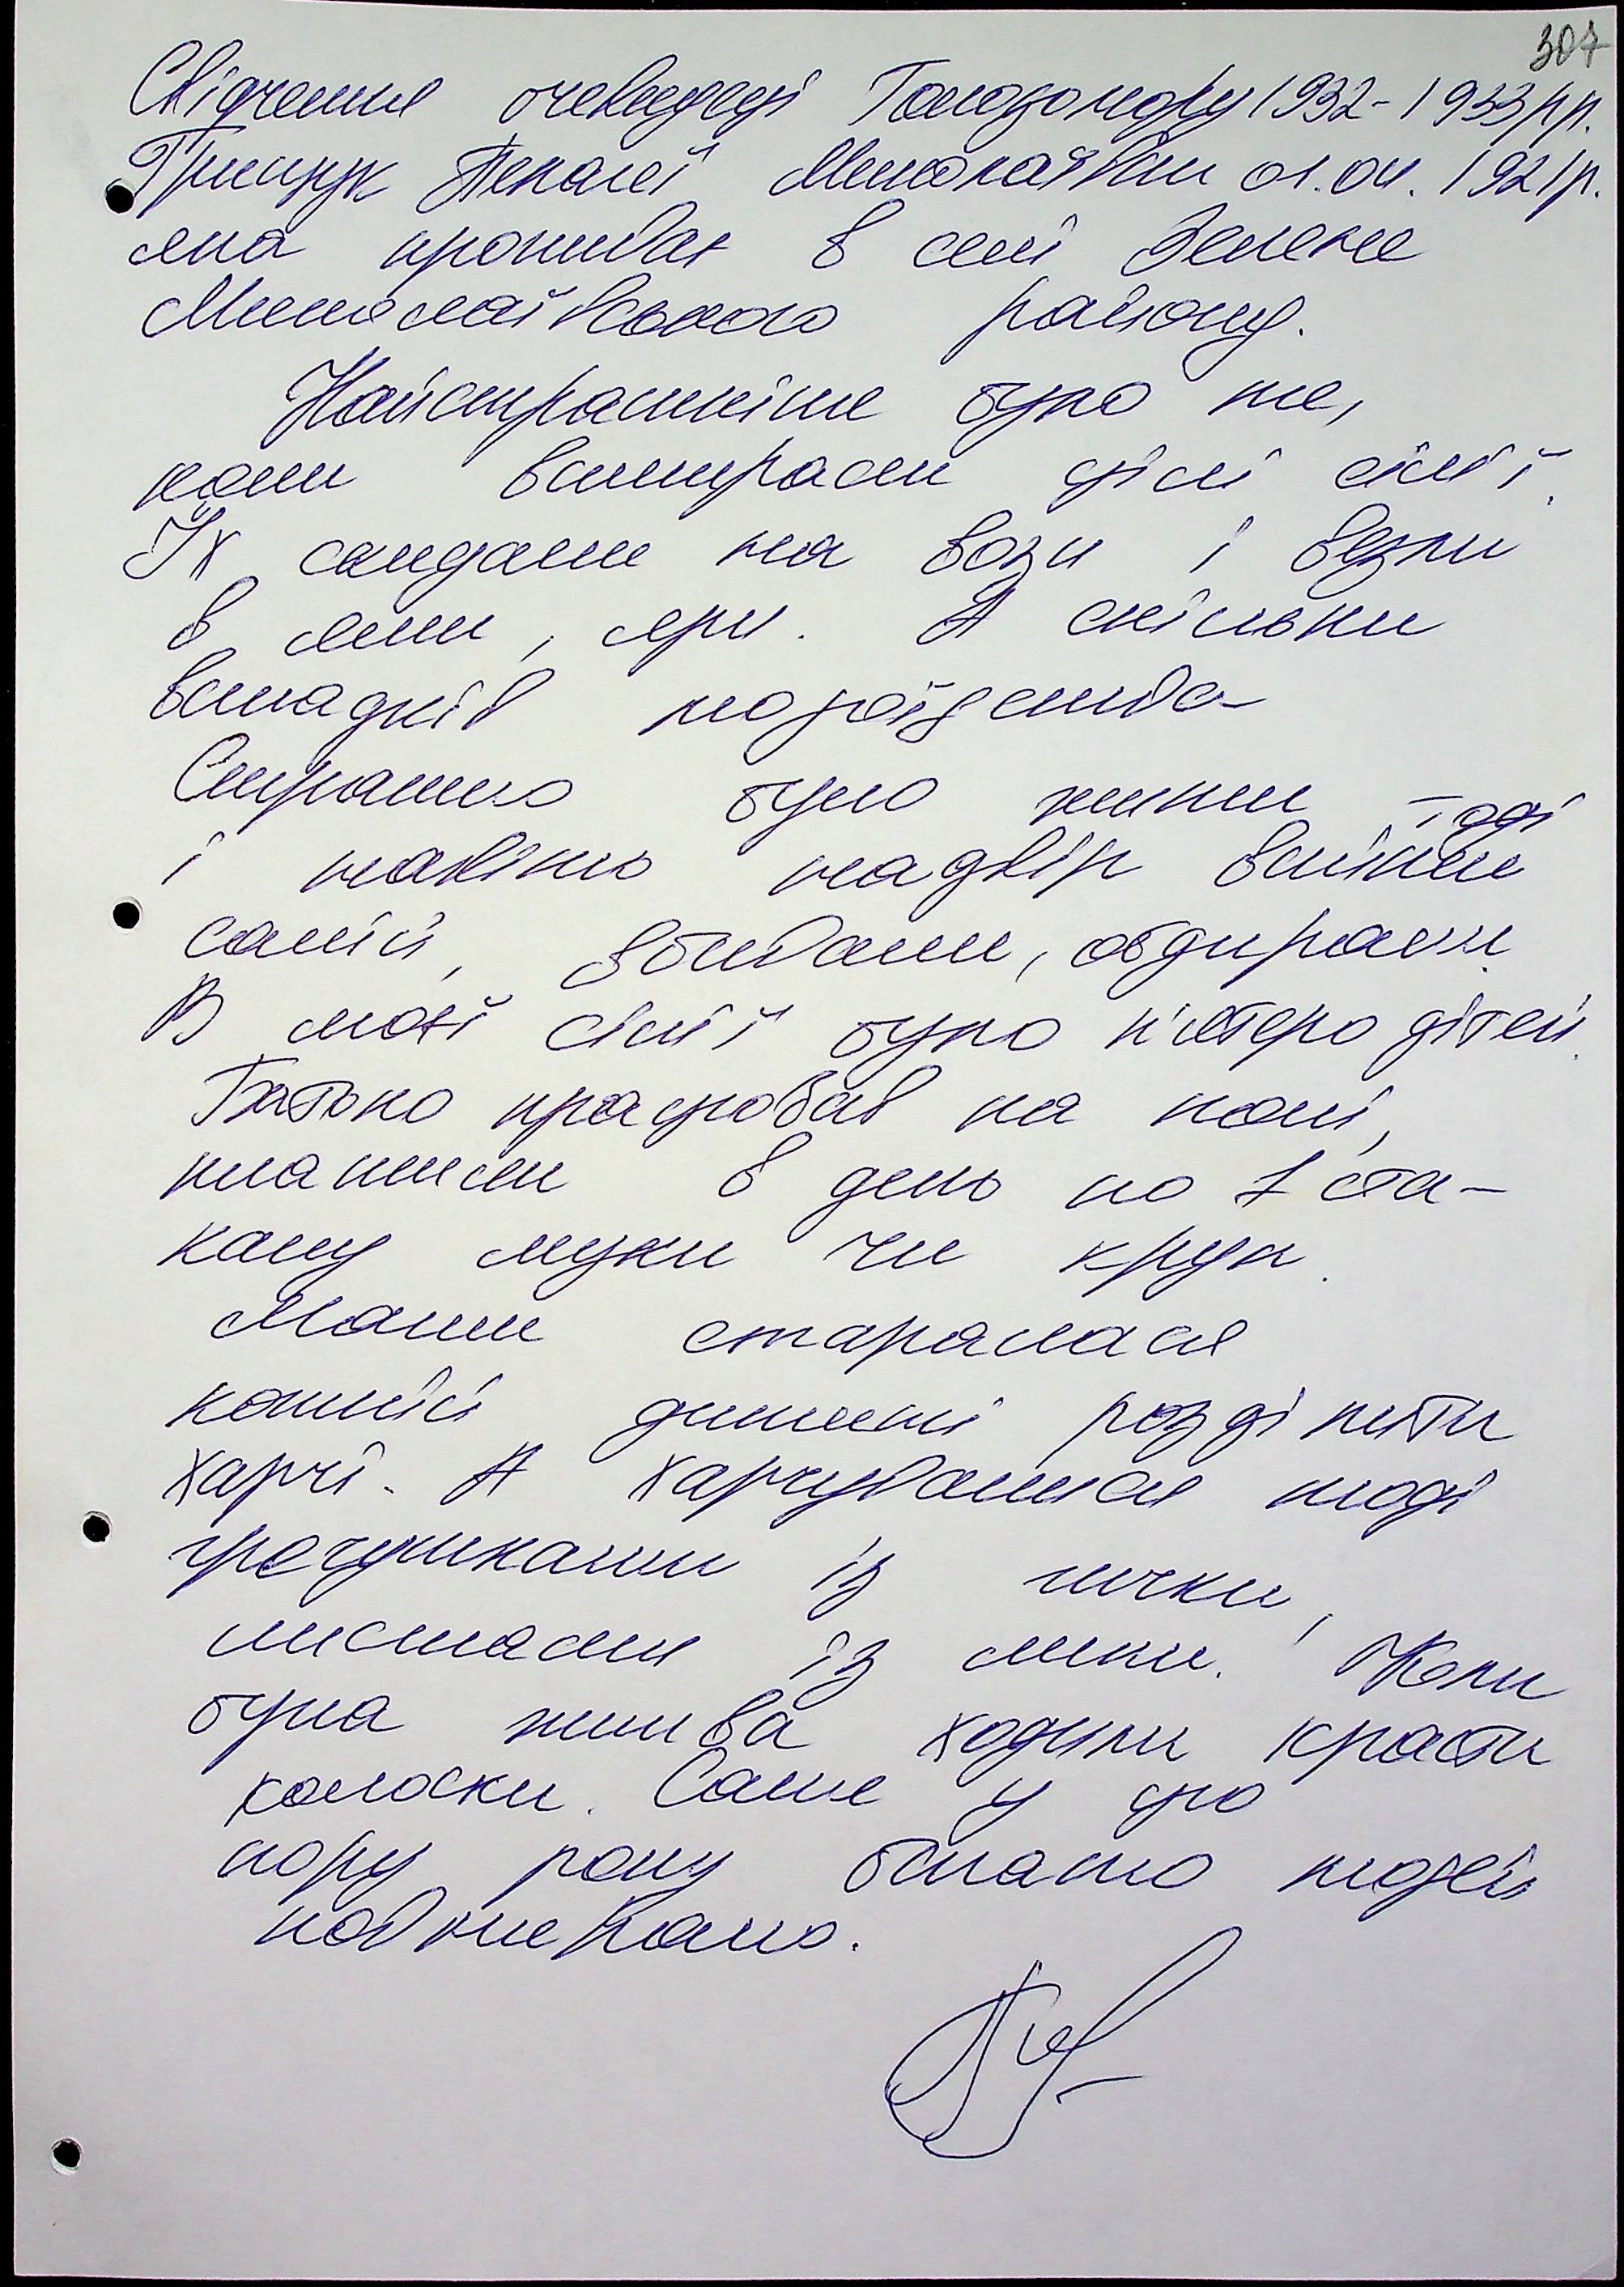 307
Свідчення очевидці Голодомору 1932-1933рр.
Грищук Пелагеї Миколаївни 01.04.1921р.
яка проживає в селі Зелене
Миколаївського району.
Найстрашніше було те,
коли вмирали цілі сім'ї.
Їх скидали на вози і везли
в ями, яри. А скільки
випадків людоїдства
Страшно було жити тоді
і навіть надвір вийти
самій, вбивали, обдирали.
В моїй сім'ї було п'ятеро дітей.
Батько працював на полі,
платили в день по 1 ста-
кану муки чи круп.
Мати старалася
кожній дитині розділити
харчі. А харчувалися тоді
гречушками із гички,
листами із липи. Коли
була жнива ходили красти
колоски. Саме у цю
пору року багато людей
повмирало.